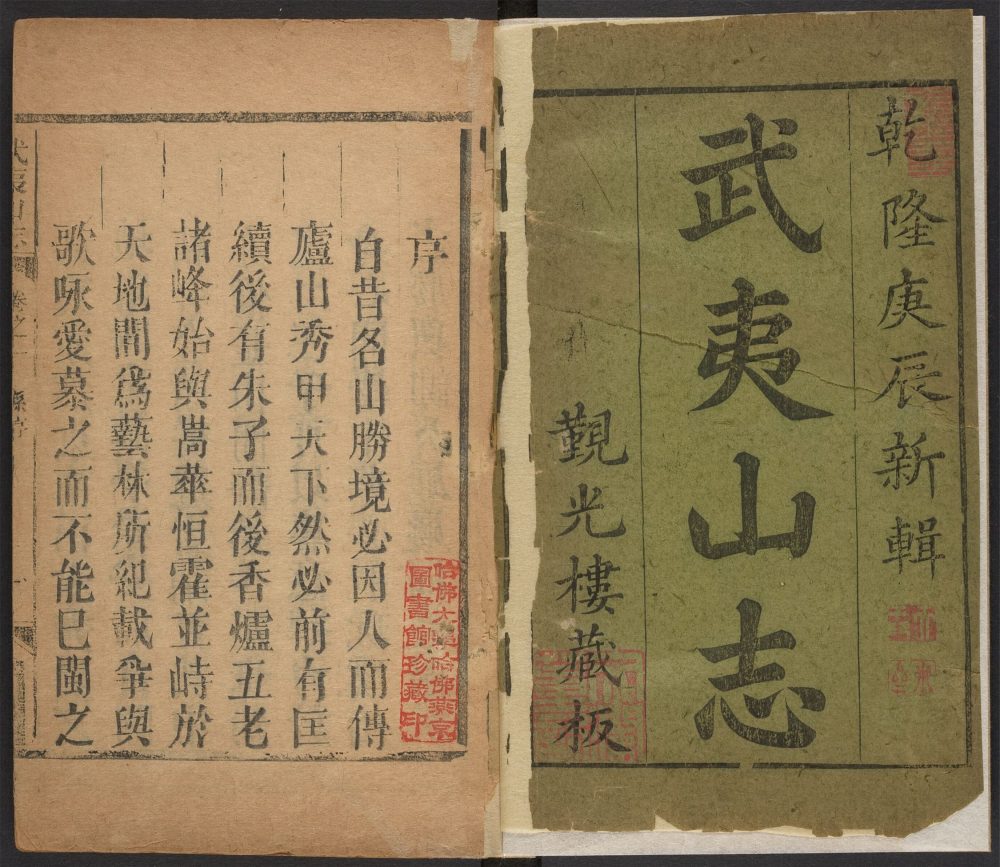 乾隆庚辰新輯
武夷山志
觀光樓藏板
序
自昔名山勝境必因人而傳
廬山秀甲天下然必前有匡
續後有朱子而後香爐五老
諸峰始與嵩華恒霍並峙於
天地間爲藝林所紀載爭與
歌咏愛慕之而不能已閩之
哈佛大學哈佛燕京
圖書館珍藏印
武夷山志 卷之